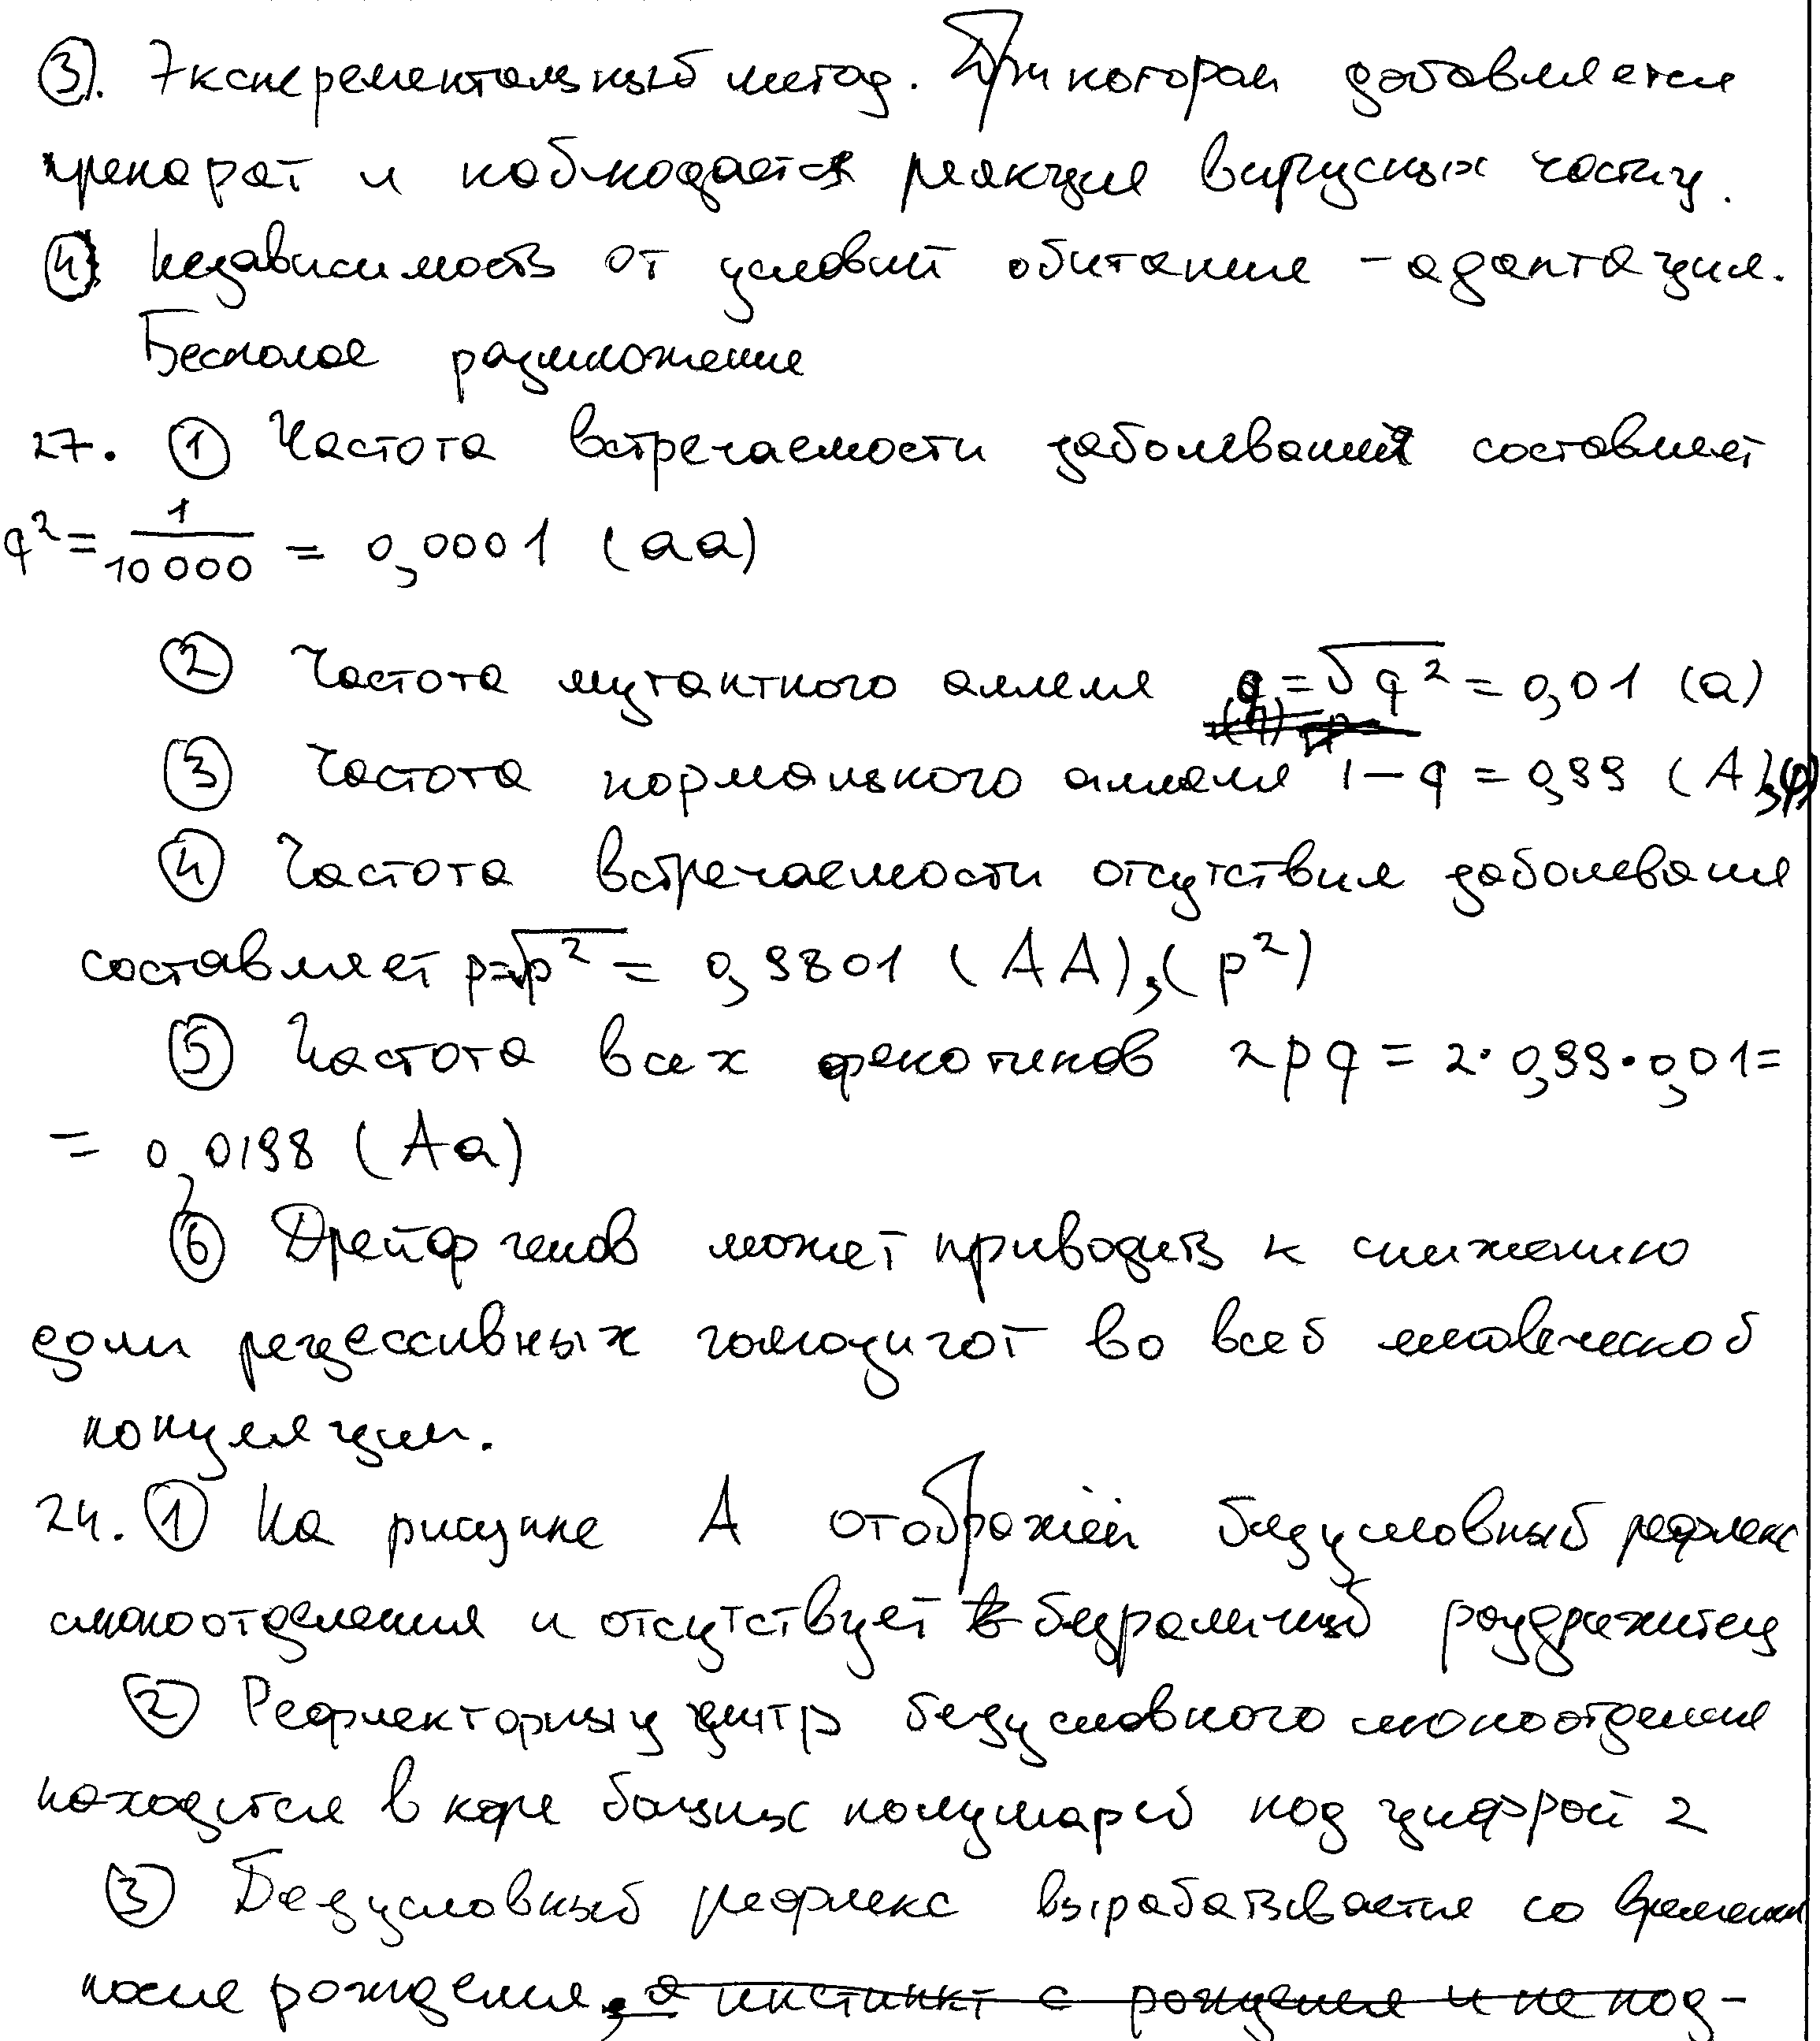 ③. Эксперементальный метод. При котором добавляется
препарат и наблюдается реакция вирусных частиц.
④ Независимость от условий обитания – адаптация.
Бесполое размножение
27. ① Частота встречаемости заболевания составляет
q² = 1/10 000 = 0,0001 (aa)
② Частота мутантного аллеля q = √q² = 0,01 (a)
③ Частота нормального аллеля 1 – q = 0,99 (A), (p)
④ Частота встречаемости отсутствия заболевания
составляет p=√p² = 0,9801 (AA), (p²)
⑤ Частота всех фенотипов 2pq = 2·0,99·0,01=
= 0,0198 (Aa)
⑥ Дрейф генов может приводить к снижению
доли рецессивных гомозигот во всей человеческой
популяции.
24. ① На рисунке А отображён безусловный рефлекс
слюноотделения и отсутствует раздражитель
② Рефлекторный центр безусловного слюноотделения
находится в коре больших полушарий под цифрой 2
③ Безусловный рефлекс вырабатывается со временем
после рождения, а инстинкт с рождения и не под-